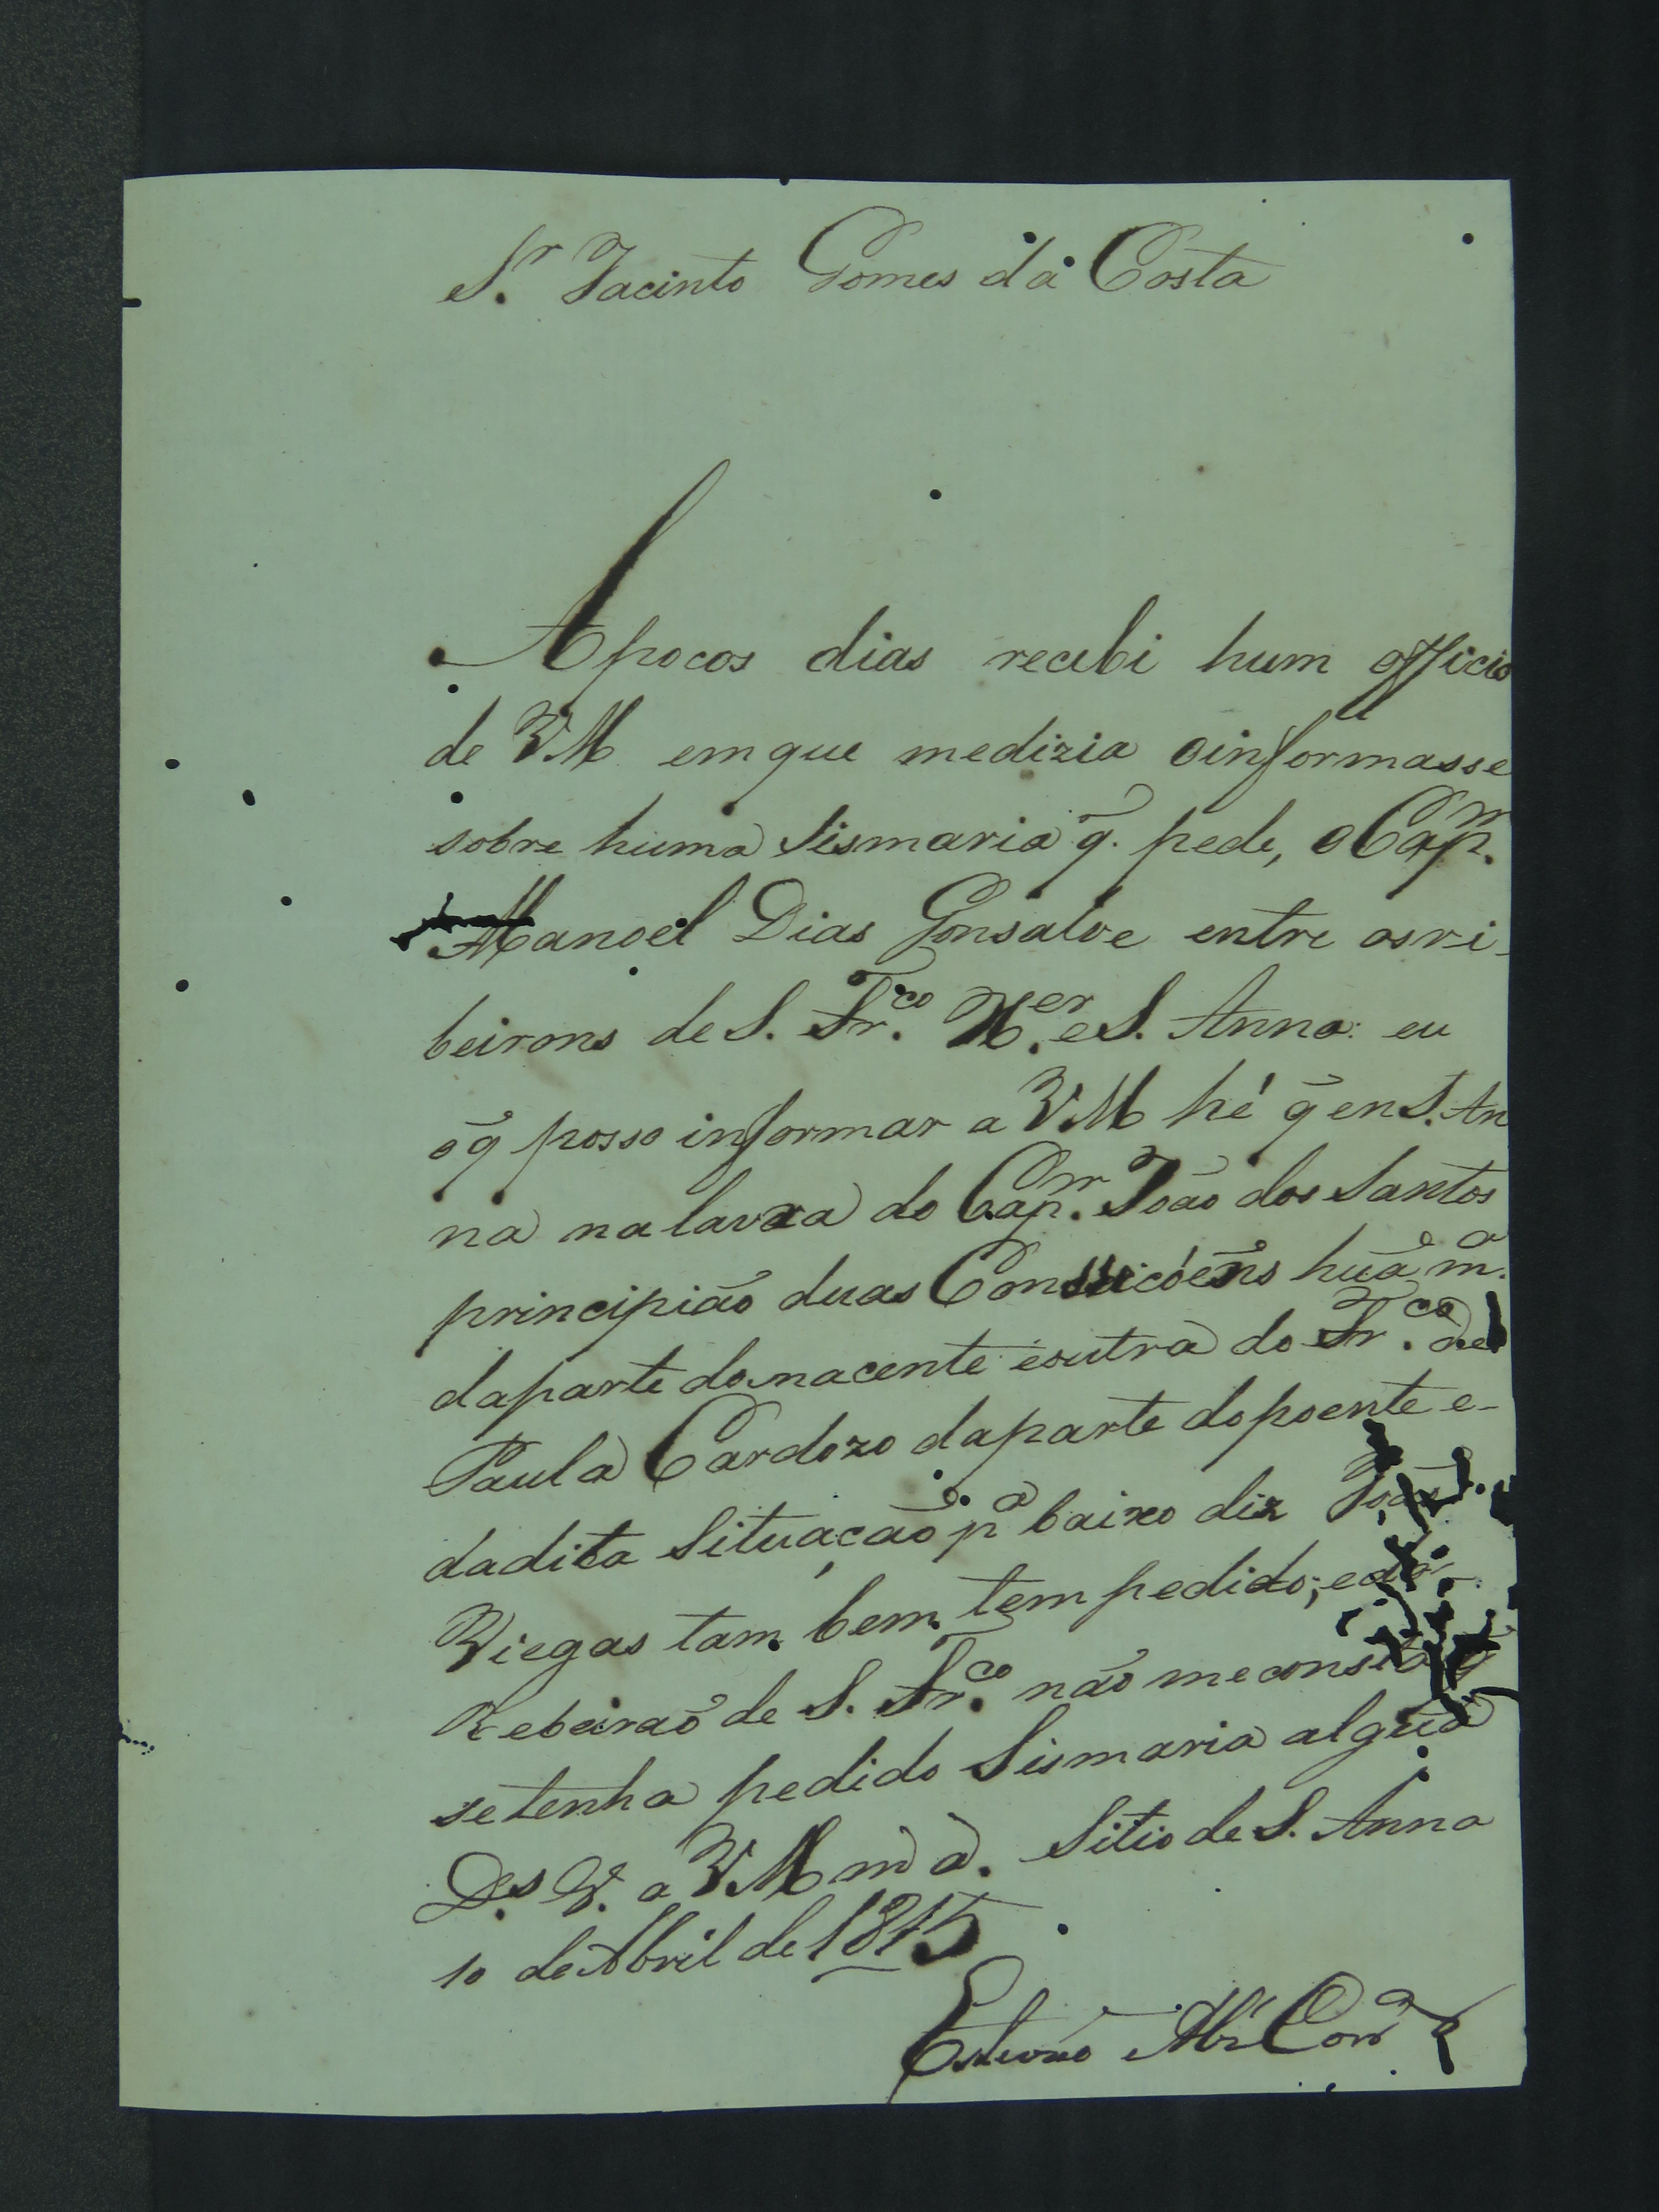 Sr. Jacinto Gomes da Costa
A pocos dias recebi hum officio
de VM em que medizia oinformasse
sobre huma Sismaria q̃. pede, o Capm.
Manoel Dias Gonsalve entre osri-
beirons de S. Frco. Xer. e S. Anna: eu
oq̃ posso informar a VM hé q̃ en S. An
na nalavra do Capm. João dos Santos
principião duas huã ma.
daparte donacente eoutra do Frco. de
Paula Cardozo daparte dopoente e-
dadita Situação pa baixo diz João
Viegas tam bem tem pedido; edo
Rebeirão de S. Frco. não meconsta q̃
setenha pedido Sismaria algũa
Ds. G. a VM m a. Sitio de S. Anna
10 de Abril de 1815
Estevão Alz Corra